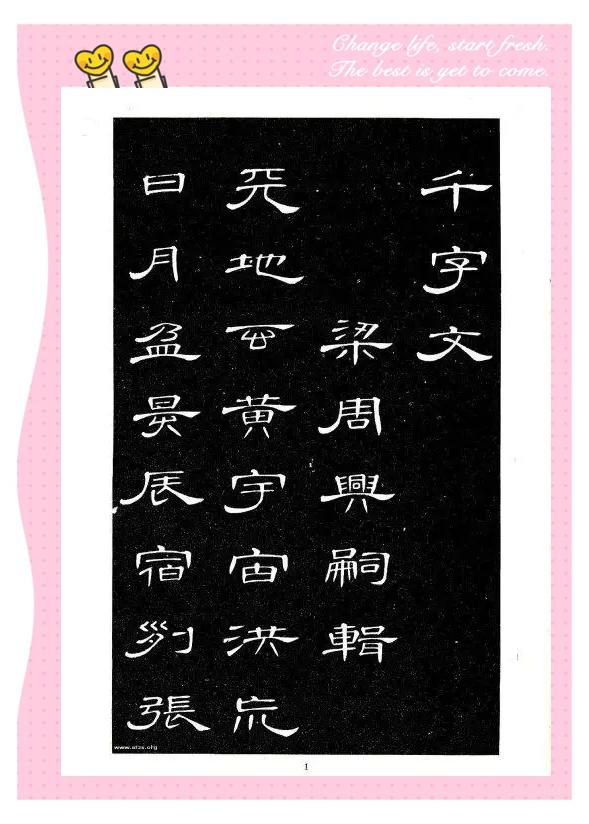 Change life, start fresh.
The best is yet to come.
千字文
梁周興嗣輯
天地玄黄宇宙洪荒
日月盈昃辰宿列張
1